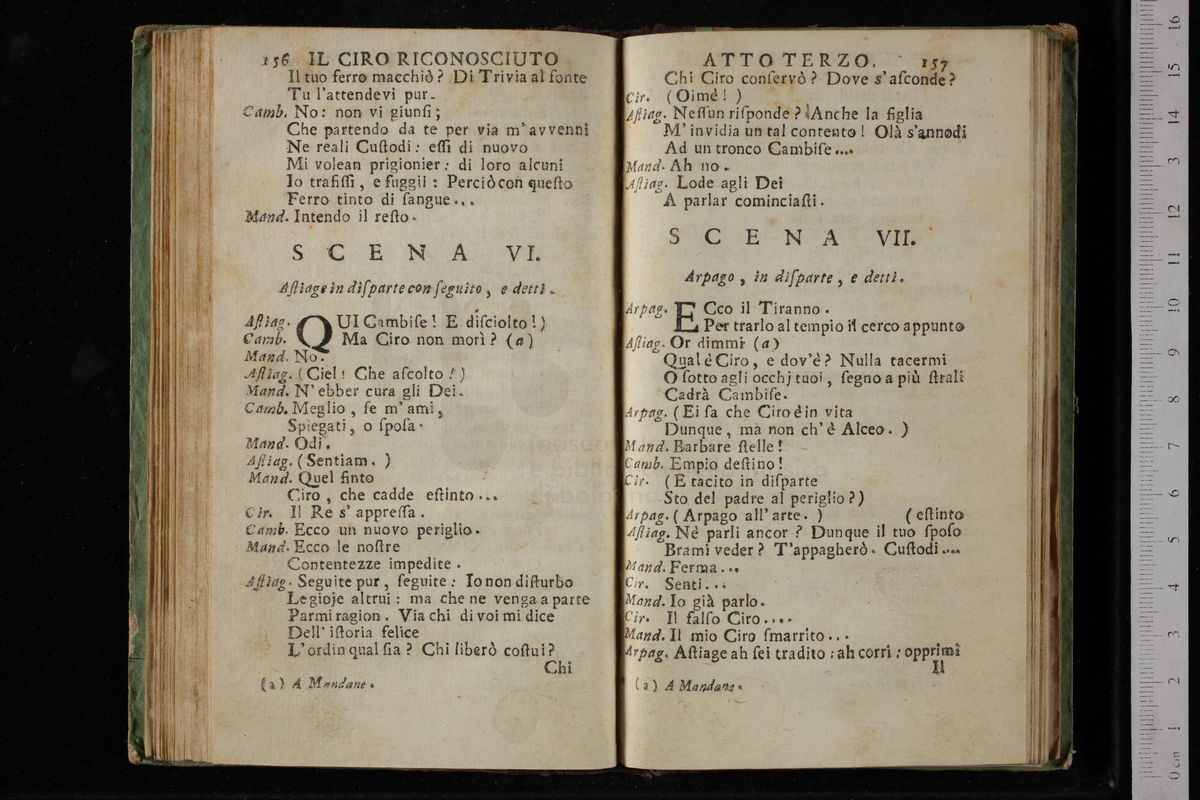 156 IL CIRO RICONOSCIUTO
Il tuo ferro macchiò? Di Trivia al fonte
Tu l'attendevi pur.
Camb. No: non vi giunſi;
Che partendo da te per via m'avvenni
Ne reali Cuſtodi: eſſi di nuovo
Mi volean prigionier: di loro alcuni
Io trafiſſi, e fuggii: Perciò con queſto
Ferro tinto di ſangue...
Mand. Intendo il reſto.
SCENA VI.
Aſtiage in diſparte con ſeguito, e detti.
Aſtiag. QUI Cambiſe! E diſciolto!)
Camb. Ma Ciro non morì? (a)
Mand. No.
Aſtiag. (Ciel! Che aſcolto!)
Mand. N'ebber cura gli Dei.
Camb. Meglio, ſe m'ami,
Spiegati, o ſpoſa.
Mand. Odi.
Aſtiag. (Sentiam. )
Mand. Quel finto
Ciro, che cadde eſtinto...
Cir. Il Re s' appreſſa.
Camb. Ecco un nuovo periglio.
Mand. Ecco le noſtre
Contentezze impedite.
Aſtiag. Seguite pur, ſeguite: Io non diſturbo
Le gioje altrui: ma che ne venga a parte
Parmi ragion. Via chi di voi mi dice
Dell' iſtoria felice
L'ordin qual ſia? Chi liberò coſtui?
Chi
(a) A Mandane.
ATTO TERZO. 157
Chi Ciro conſervò? Dove s'aſconde?
Cir. (Oimè! )
Aſtiag. Neſſun riſponde? Anche la figlia
M'invidia un tal contento! Olà s'annodi
Ad un tronco Cambiſe....
Mand. Ah no.
Aſtiag. Lode agli Dei
A parlar cominciaſti.
SCENA VII.
Arpago, in diſparte, e detti.
Arpag. ECco il Tiranno.
Per trarlo al tempio il cerco appunto
Aſtiag. Or dimmi (a)
Qual è Ciro, e dov'è? Nulla tacermi
O ſotto agli occhj tuoi, ſegno a più ſtrali
Cadrà Cambiſe.
Arpag. (Ei ſa che Ciro è in vita
Dunque, ma non ch'è Alceo. )
Mand. Barbare ſtelle!
Camb. Empio deſtino!
Cir. (E tacito in diſparte
Sto del padre al periglio?)
Arpag. (Arpago all'arte. ) (eſtinto
Aſtiag. Nè parli ancor? Dunque il tuo ſpoſo
Brami veder? T'appagherò. Cuſtodi....
Mand. Ferma...
Cir. Senti...
Mand. Io già parlo.
Cir. Il falſo Ciro....
Mand. Il mio Ciro ſmarrito...
Arpag. Aſtiage ah ſei tradito: ah corri: opprimi
Il
(a) A Mandane.